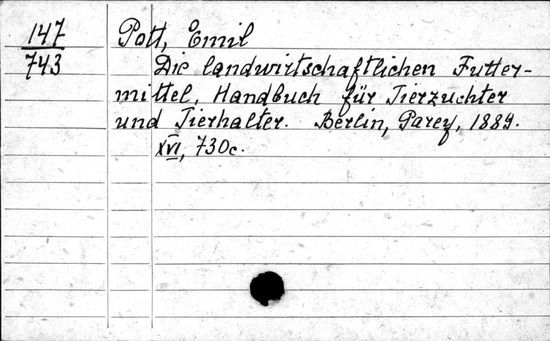 147 Pott, Emil
743 Die landwirtschaftlichen Futter-
mittel, Handbuch für Tierzüchter
und Tierhalter. Berlin, Parey, 1889.
XVI, 730c.